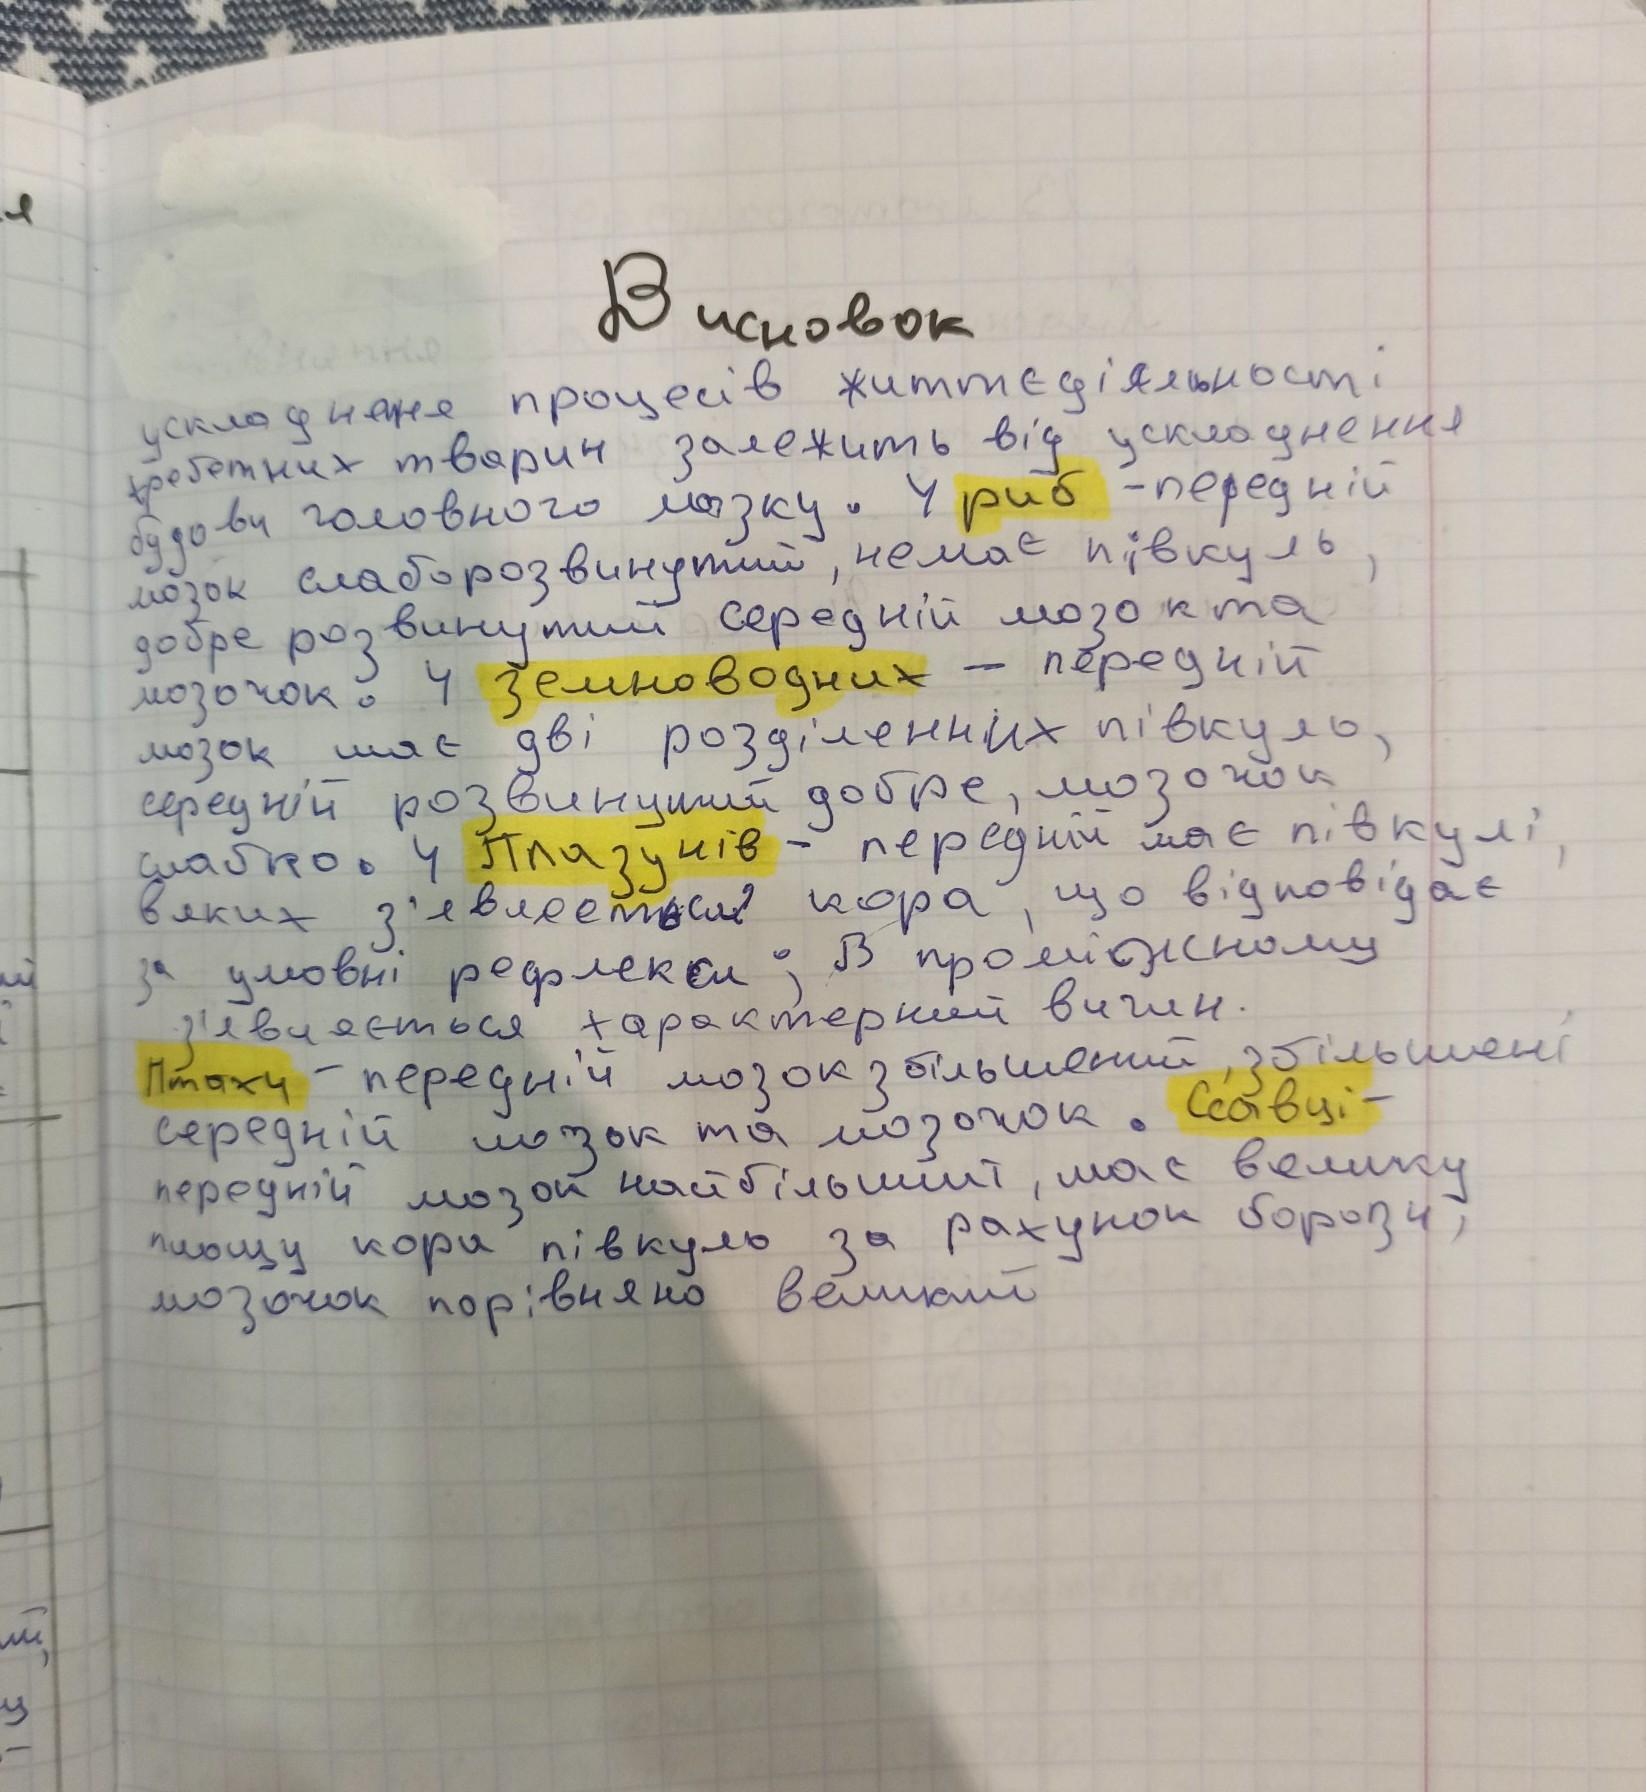 Висновок
ускладнення процесів життєдіяльності
хребетних тварин залежить від ускладнення
будови головного мозку. У риб - передній
мозок слаборозвинутий, немає півкуль,
добре розвинутий середній мозок та
мозочок. У земноводних - передній
мозок має дві розділенних півкуль,
середній розвинутий добре, мозочок
слабко. У Плазунів - передній має півкулі,
вяких з'явлеється кора, що відповідає
за умовні рефлекси; В проміжному
з'являється характерний вигин.
Птахи - передній мозок збільшений, збільшені
середній мозок та мозочок. Ссавці -
передній мозок найбільший, має велику
площу кори півкуль за рахунок борозн,
мозочок порівняно великий